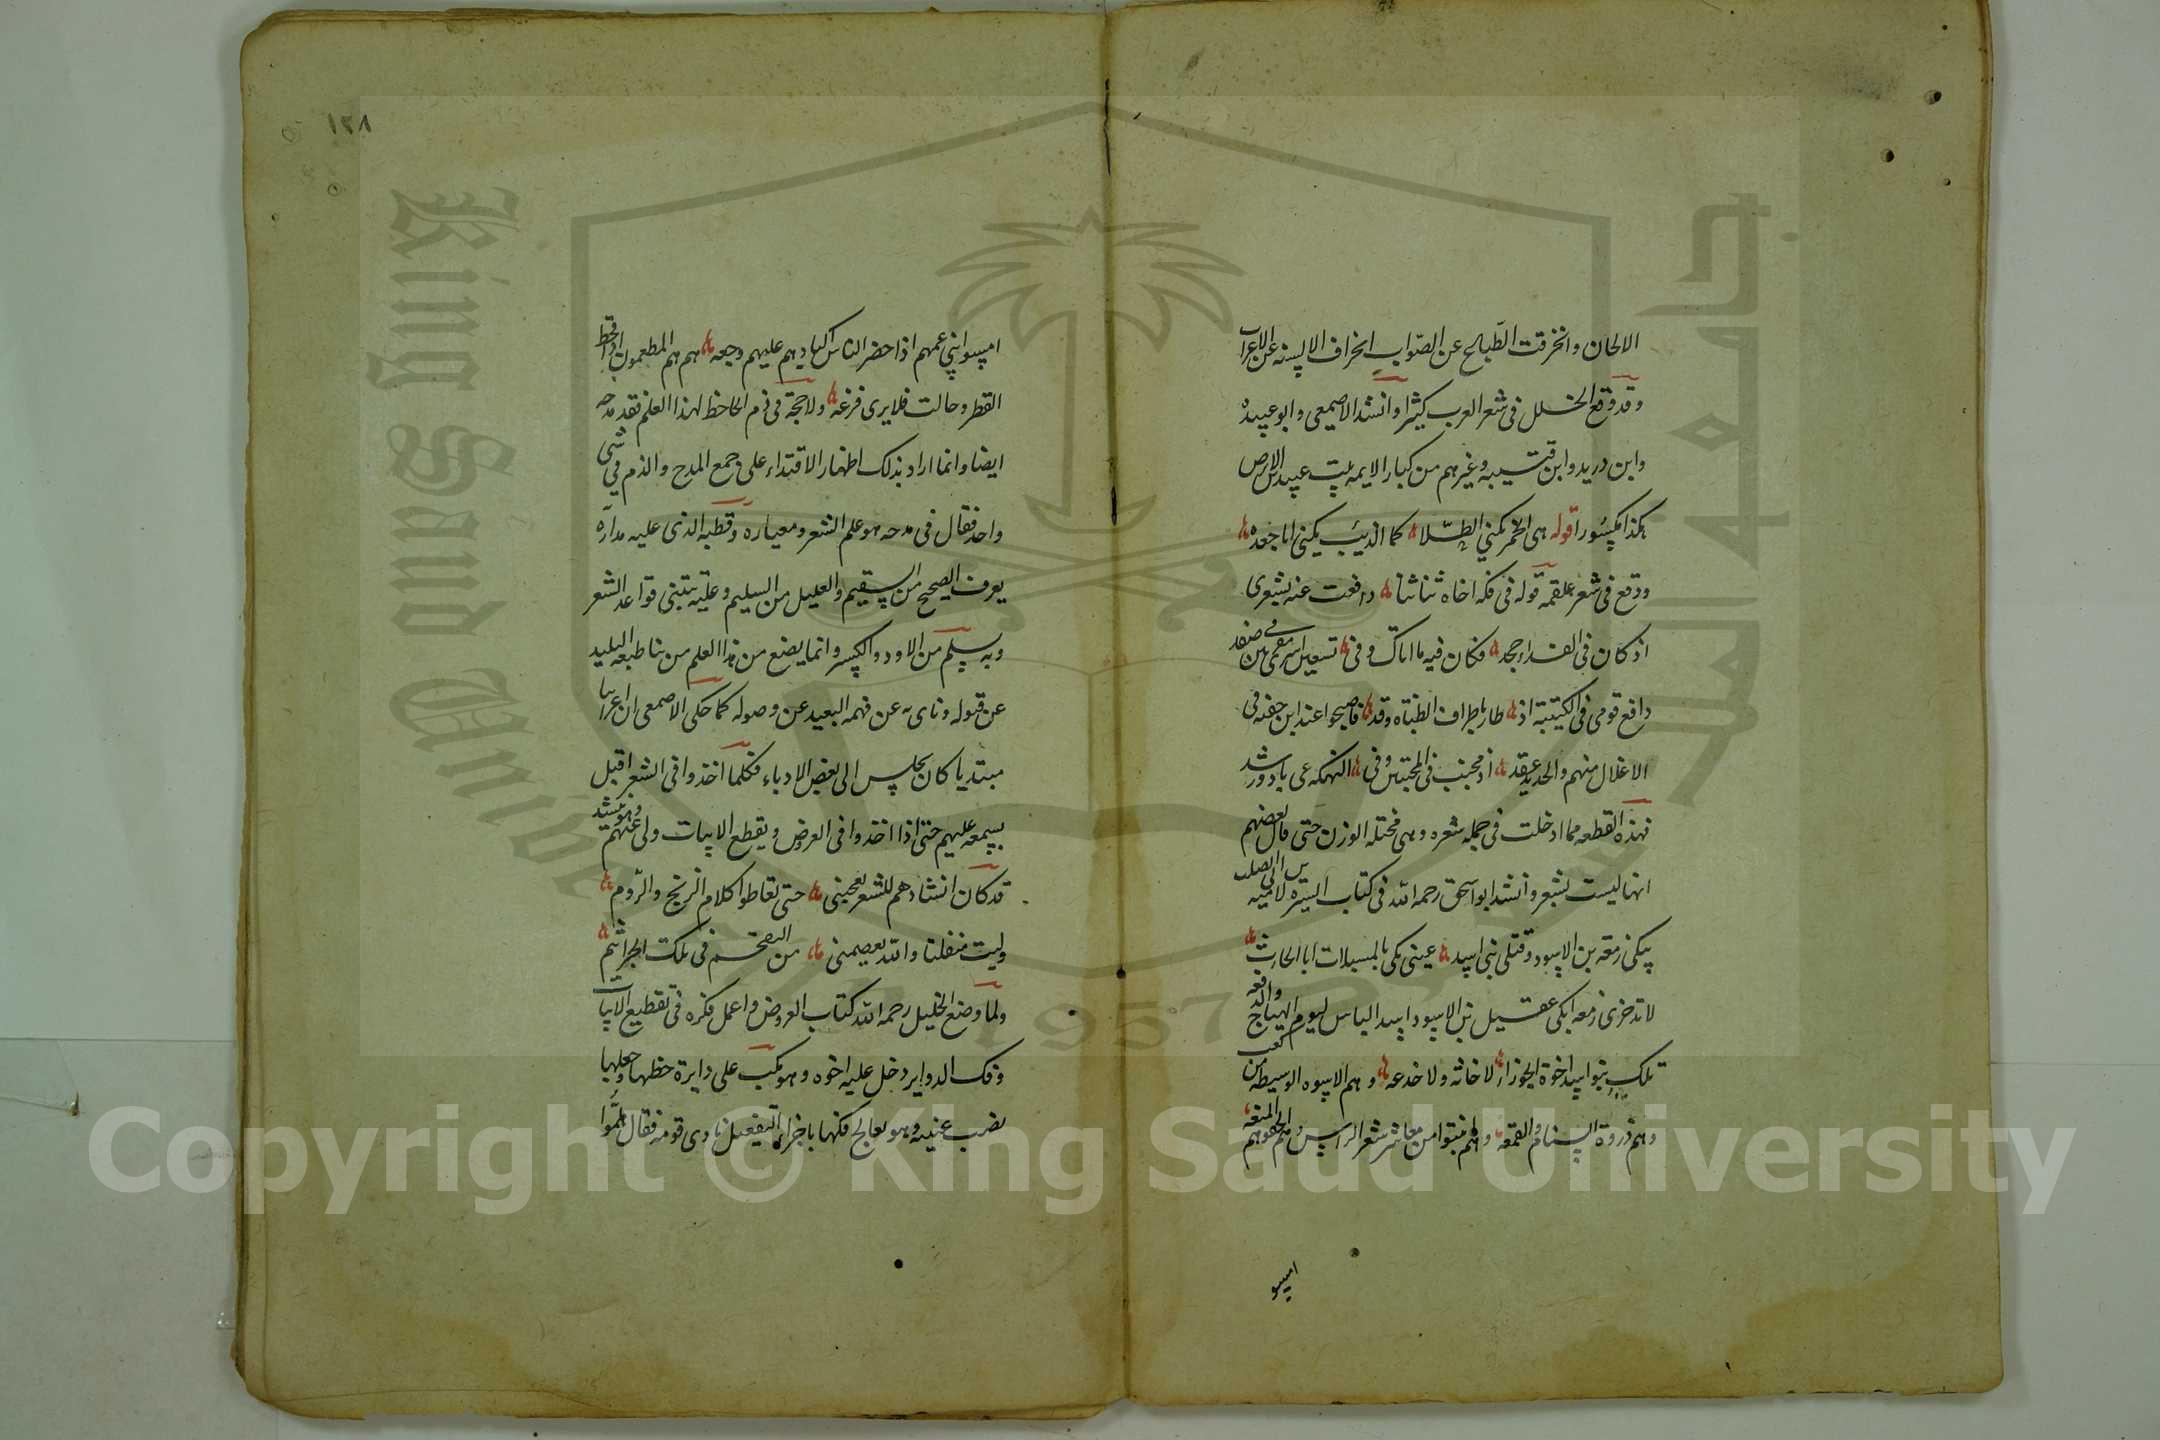 الالحان وانخرقت الطبايع عن الصواب انحراف الالسنه عن الاعراب
وقد وقع الخلل في شعر العرب كثيرا وانشد الاصمعي وابو عبيده
وابن دريد وابن قتيبه وغيرهم من كبار الايمه بيت عبيد بن الابرص
هكذا مكسورا قوله هي الخمر تكني الطلا كما الذيب يكنى ابا جعده
ووقع في شعر علقمه قوله في فكه اخاه شاسا دافعت عنه بشعري
اذ كان في الفداء جحد فكان فيه ما اتاك وفي تسعين اسرى مقرنين صفد
دافع قومي في الكتيبة اذ طار باطراف الظباه وقد فاصبحوا عند ابن جفنه في
الاغلال منهم والحديد عقد اذ مجنب في المجنبين وفي النهكه غي بادو رشد
فهذه القطعه مما ادخلت في جمله شعره وهي مختله الوزن حتى قال بعضهم
انها ليست بشعر وانشد ابو اسحق رحمه الله في كتاب السيره لاميه بن ابي الصلت
يبكي زمعه بن الاسود وقتلى بني اسد عيني بكى بالمسبلات ابا الحارث
لا تذخرى زمعه ابكى عقيل بن الاسود اسد الباس ليوم الهياج والدفعه
تلك بنو اسد اخوة الجوزاء لا خانه ولا خدعه وهم الاسره الوسيطه من كعب
وهم ذروة السنام والقمعه وهم نبتوا من معاشر شعر الراس وهم الحقوهم المنعه
امسو
١٢٨
امسوا بني عمهم اذا حضر الناس اكبادهم عليهم وجعه هم هم المطعمون اذ قحط
القطر وحالت فلا يرى قزعه ولا حجة في ذم الجاحظ لهذا العلم فقد مدحه
ايضا وانما اراد بذلك اظهار الاقتداء على جمع المدح والذم في شي
واحد فقال في مدحه هو علم الشعر ومعياره وقطبه الذي عليه مداره
يعرف الصحيح من السقيم والعليل من السليم وعليه يبتنى قواعد الشعر
وبه يسلم من الاود والكسر وانما يضع من هذا العلم من نبا طبعه البليد
عن قبوله وناى به عن فهمه البعيد عن وصوله كما حكى الاصمعي ان اعرابيا
مبتديا كان يجلس الى بعض الادباء فكلما اخذوا في الشعر اقبل
بسمعه عليهم حتى اذا اخذوا في العروض ويقطع الابيات ولى عنهم وهو ينشد
قد كان انشادهم للشعر يعجبني حتى تعاطوا كلام الزنج والروم
وليت منفلتا والله يعصمني من التقحم في تلك الجراثيم
ولما وضع الخليل رحمه الله كتاب العروض واعمل فكره في تقطيع الابيات
وفك الدواير دخل عليه اخوه وهو مكب على دايرة خطها وجعلها
نصب عينيه وهو يعالج فكها باجزاء التفعيل نادى قومه فقال هلموا